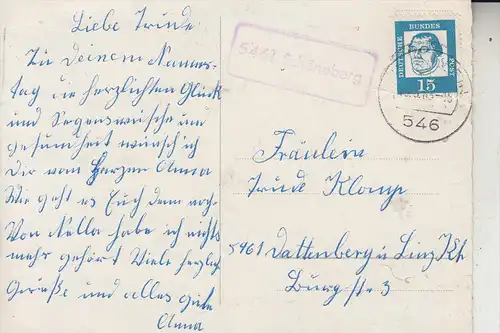 Liebe Trude
Zu Deinem Namens-
tag die herzlichsten Glück
und Segenswünsche und
gesundheit wünsch ich
Dir vom Herzen Anna
Wie geht es Euch denn noch
Von Nella habe ich nichts
mehr gehört Viele herzlich
Grüße und alles gute
Anna
5461
DEUTSCHE BUNDES POST
15
546
Fräulein
Trude Klomp
5461 Dattenberg ü Linz Rh
Burg str 3